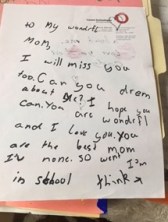 to My wonderfl
Mom,
I will miss you
too. Can you drem
about me? I
Can. You are hope you
wonderfl
and I love you. you
are the best mom
I'v none. so went I'm
in school think